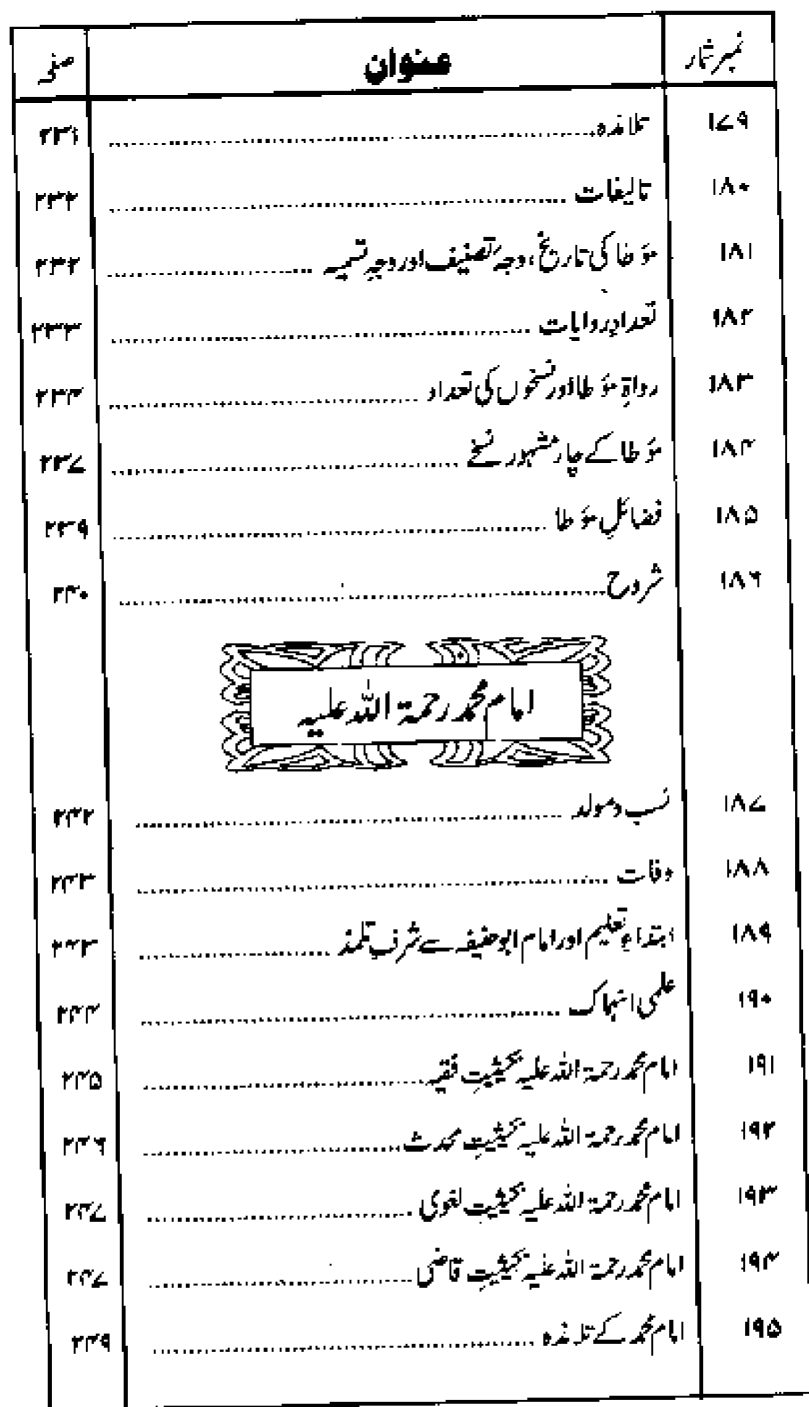 نمبر شمار عنوان صفحہ
۱۷۹ تلامذہ ۲۳۱
۱۸۰ تالیفات ۲۳۲
۱۸۱ مؤطا کی تاریخ، وجہ تصنیف اور وجہِ تسمیہ ۲۳۲
۱۸۲ تعدادِ روایات ۲۳۳
۱۸۳ رواۃِ مؤطا اور نسخوں کی تعداد ۲۳۴
۱۸۴ مؤطا کے چار مشہور نسخے ۲۳۷
۱۸۵ فضائلِ مؤطا ۲۳۹
۱۸۶ شروح ۲۴۰
امام محمد رحمۃ اللہ علیہ
۱۸۷ نسب و مولد ۲۴۲
۱۸۸ وفات ۲۴۳
۱۸۹ ابتداءِ تعلیم اور امام ابوحنیفہ سے شرفِ تلمذ ۲۴۳
۱۹۰ علمی انہماک ۲۴۴
۱۹۱ امام محمد رحمۃ اللہ علیہ بحیثیتِ فقیہ ۲۴۵
۱۹۲ امام محمد رحمۃ اللہ علیہ بحیثیتِ محدث ۲۴۶
۱۹۳ امام محمد رحمۃ اللہ علیہ بحیثیتِ لغوی ۲۴۷
۱۹۴ امام محمد رحمۃ اللہ علیہ بحیثیتِ قاضی ۲۴۷
۱۹۵ امام محمد کے تلامذہ ۲۴۹